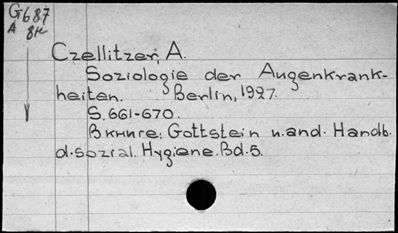 G687
A 8К
Czellitzer, A.
Soziologie der Augenkrank-
heiten. Berlin, 1927.
S. 661-670.
В книге: Gottstein u. and. Handb.
d. sozial. Hygiene. Bd. 5.